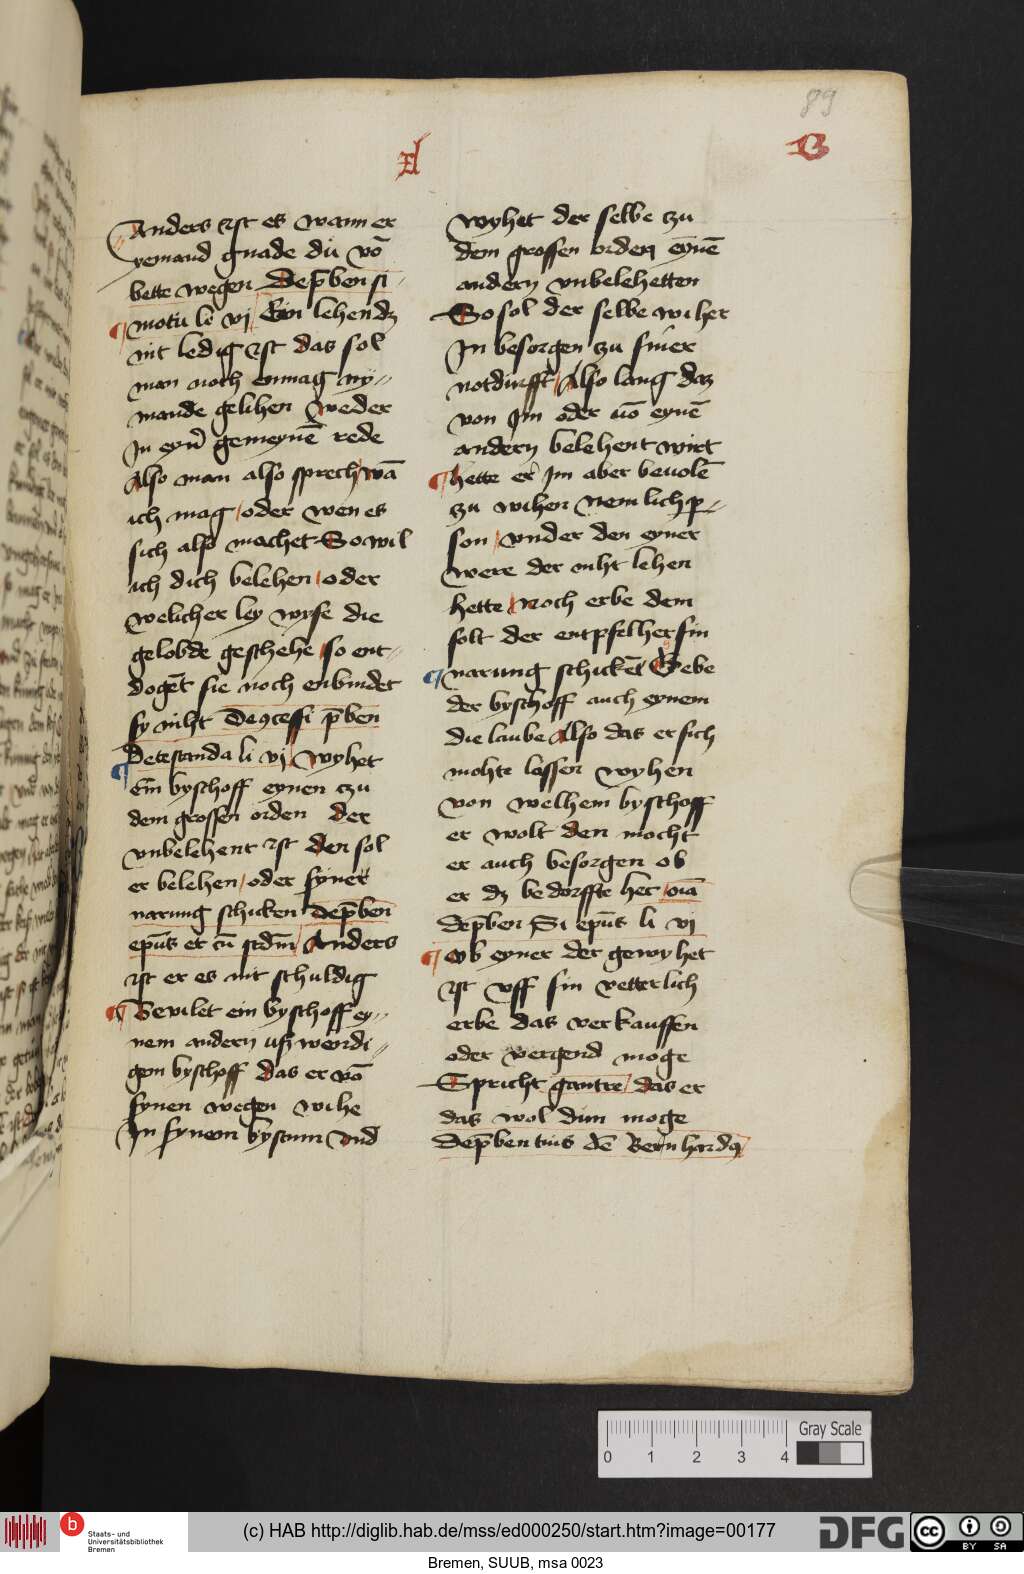 89
A
B
Anders ist es wann er
yemand gnade du vō
bette wegen Dep̄ben si
motu li vj Ein lehen dz
nit ledig ist das sol
man noch enmag ny//
mande gelihen Weder
In eyn̄ gemeynē rede
Also man also sprech wā
ich mag oder wen es
sich also machet So wil
ich dich belehen oder
welicher ley wyse die
gelobde geschehe so ent//
dogēt sie noch enbindet
sy niht De ꝯcessi p̄ben
Detestanda li vj Wyhet
Ein byschoff eynen czu
dem grossen orden der
vnbelehent ist den sol
er belehen oder syner
narung schicken dep̄ben
ep̄us et cū scd̄m Anders
ist er es nit schuldig
Bevilet ein byschoff ey//
nem andern uszwendi//
gem byschoff das er vō
synen wegen wihe
In synem bystum vnd
wyhet der selbe zu
dem grossen orden eynē
andern vnbelehetten
So sol der selbe wiher
In besorgen zu siner
notdurfft Also lang daz
von Im oder uō eynē
andern belehent wirt
hette er Im aber bevolē
zu wihen nemlich ꝑ//
son vnder den eyner
were der niht lehen
hette noch erbe dem
solt der entpfelher sin
narung schickēt Gebe
der byschoff auch eynem
die laube Also das er sich
mohte lassen wyhen
von welhem byschoff
er wolt den mocht
er auch besorgen ob
er dz bedorffte her oīa
dep̄ben Si ep̄us li vj
Ob eyner der gewyhet
ist vff sin vetterlich
erbe das verkauffen
oder vergend moge
Spricht gantre das er
das wol dun moge
dep̄ben tuis dē Bernhardꝯ
0 1 2 3 4
Gray Scale
b Staats- und
Universitätsbibliothek
Bremen
(c) HAB http://diglib.hab.de/mss/ed000250/start.htm?image=00177
DFG
cc BY SA
Bremen, SUUB, msa 0023